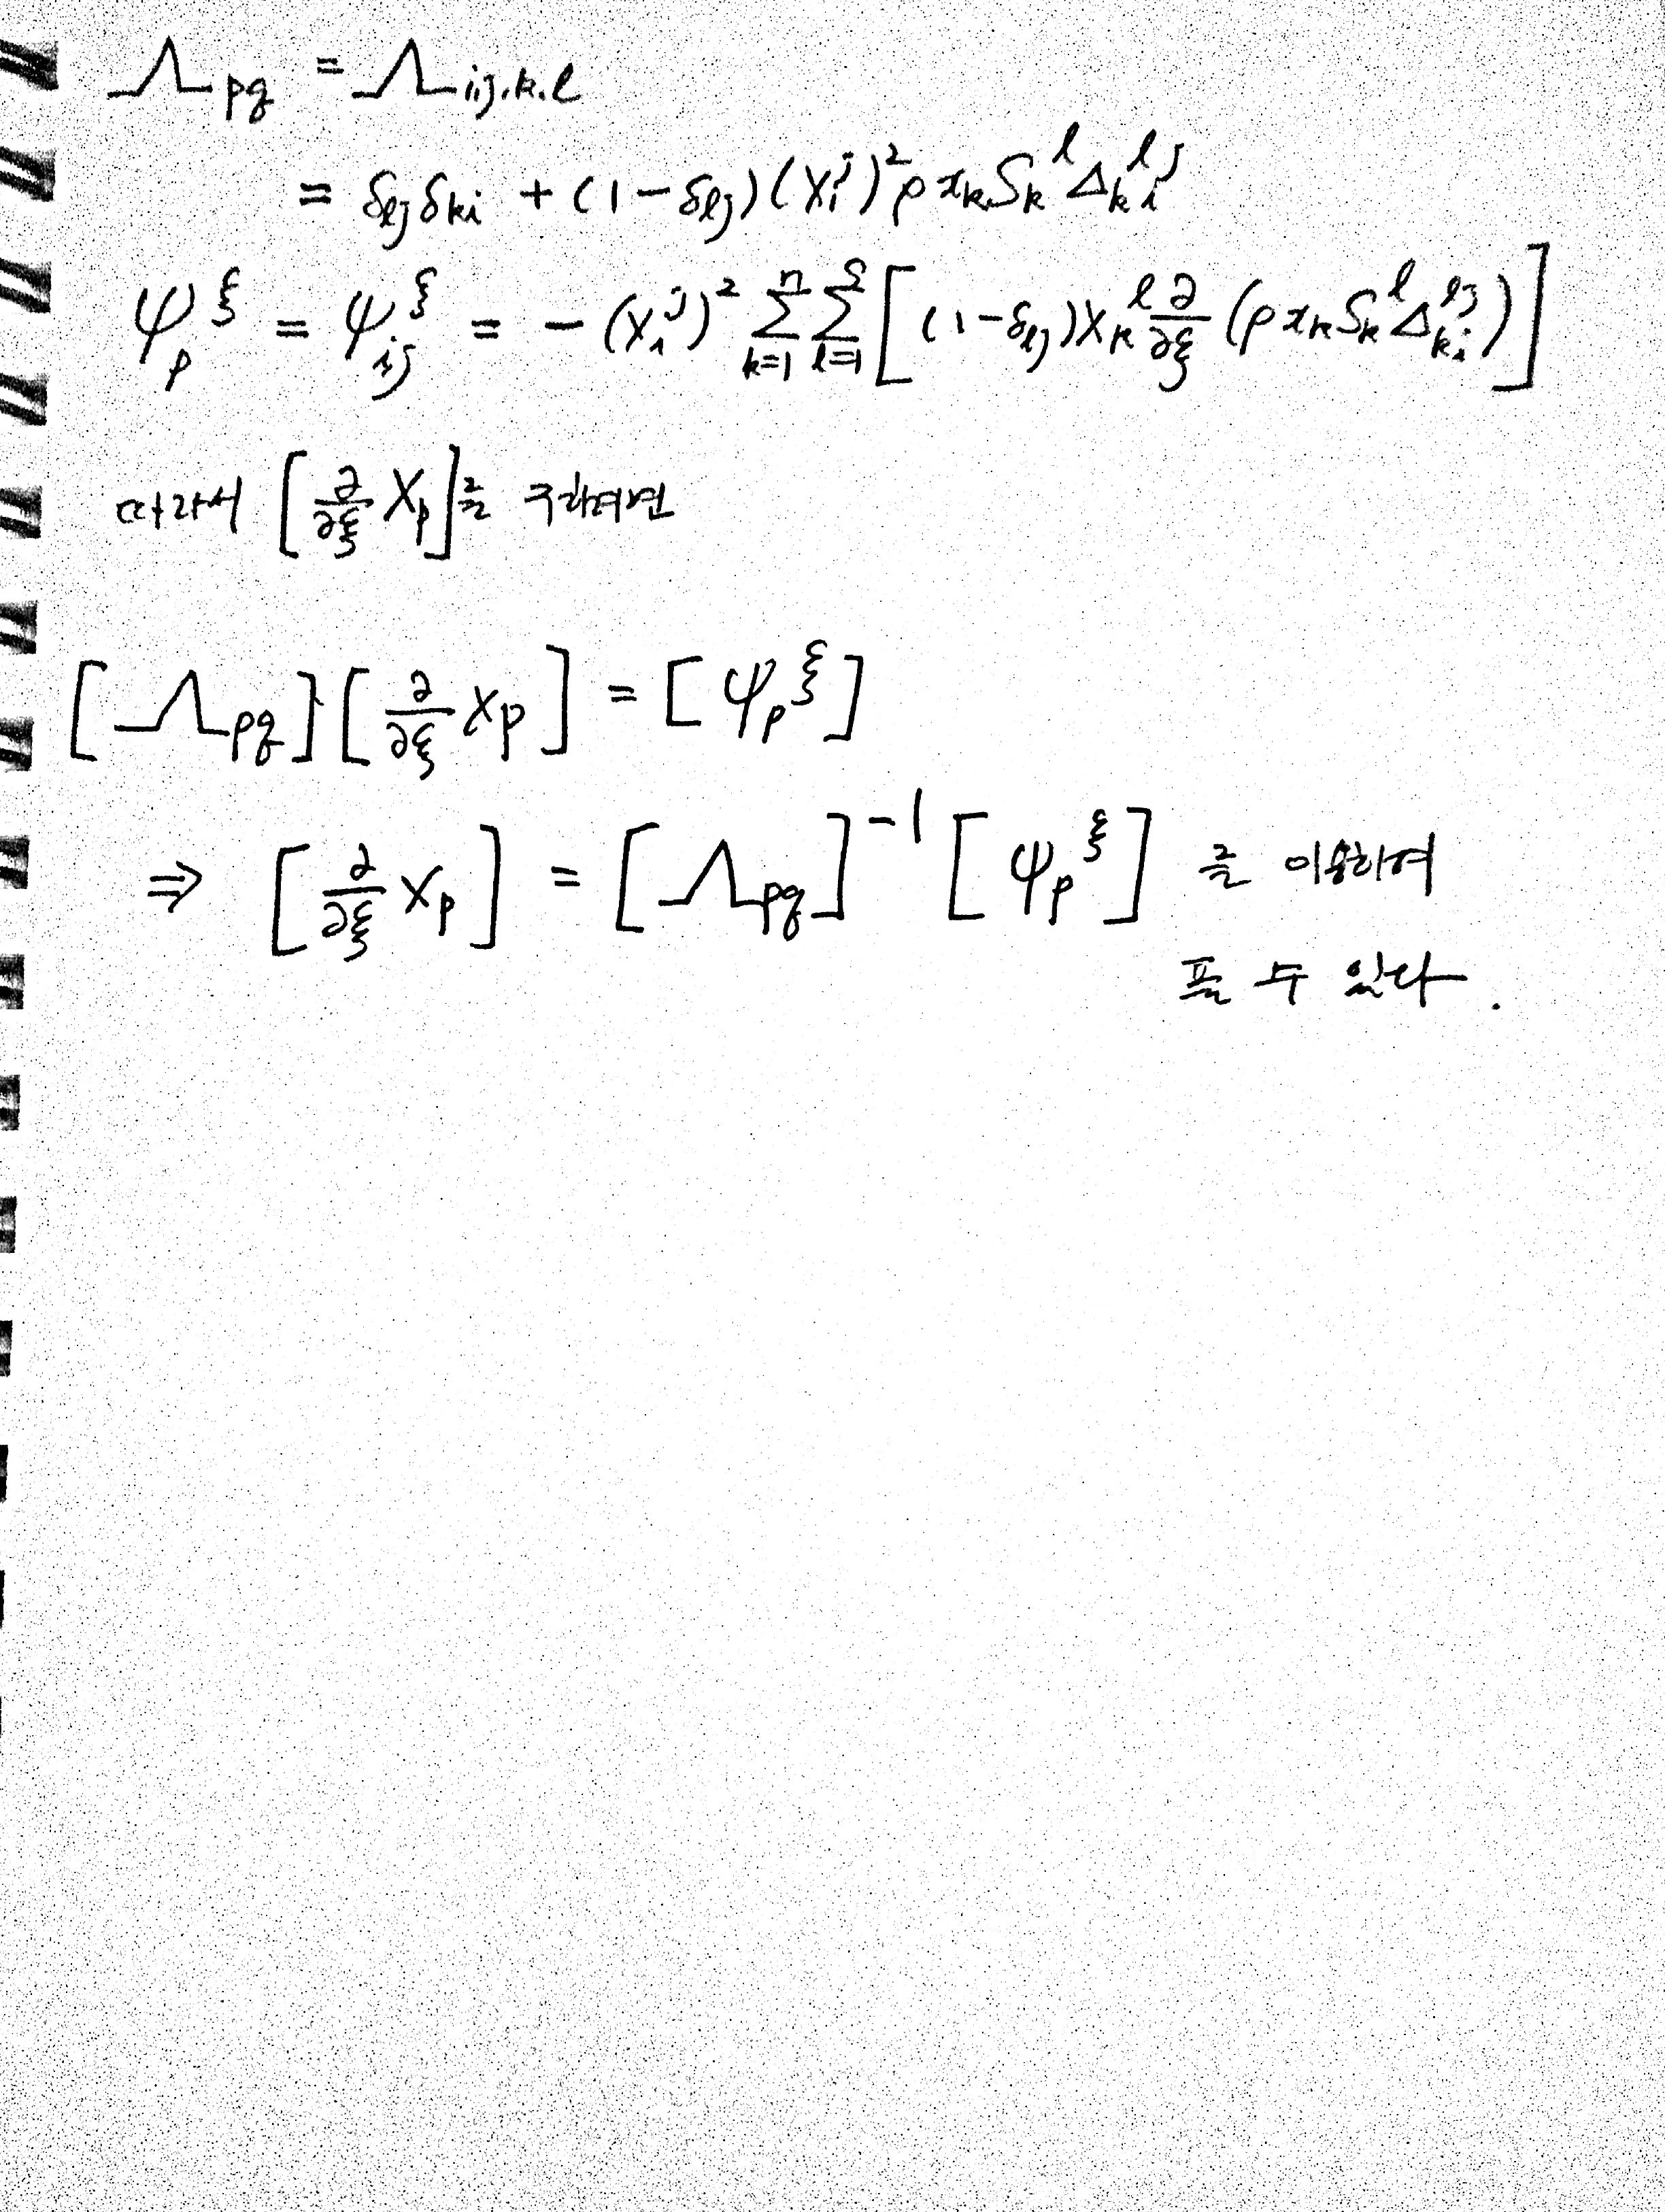 Λ_pq = Λ_ij,k,l
= δ_lj δ_ki + (1-δ_lj)(X_i^j)^2 ρ x_k S_k^l Δ_k^l_i^j
ψ_p^ξ = ψ_ij^ξ = -(X_i^j)^2 Σ_{k=1}^{n} Σ_{l=1}^{S} [(1-δ_lj) X_k^l ∂/∂ξ (ρ x_k S_k^l Δ_k^l_i^j)]
따라서 [∂/∂ξ X_p]를 구하려면
[Λ_pq]·[∂/∂ξ X_p] = [ψ_p^ξ]
⇒ [∂/∂ξ X_p] = [Λ_pq]^-1 [ψ_p^ξ] 를 이용하여
풀 수 있다.